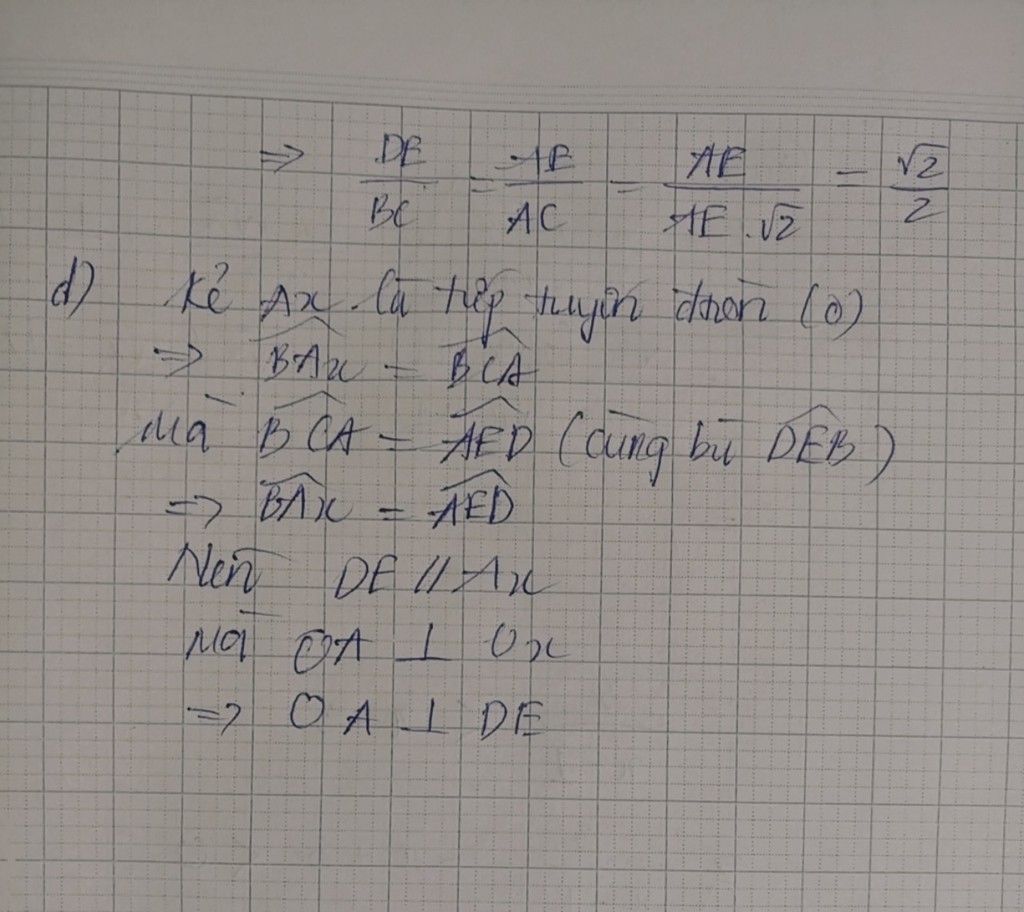 ⇒ DE/BC = AE/AC = AE/AE.√2 = √2/2
d) Kẻ Ax là tiếp tuyến (O)
⇒ BAx = BCA
Mà BCA = AED (cùng bù DEB)
⇒ BAx = AED
Nên DE // Ax
Mà OA ⊥ Ox
⇒ OA ⊥ DE